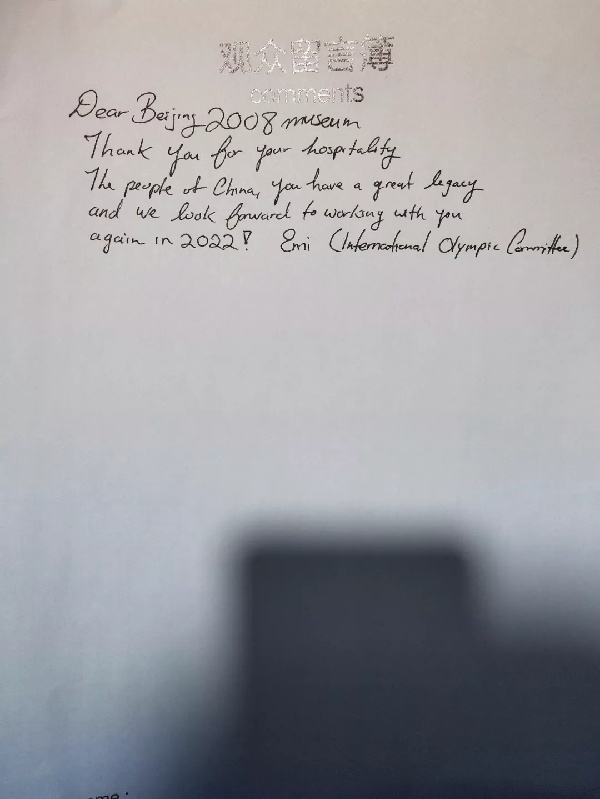 观众留言簿
comments
Dear Beijing 2008 museum
Thank you for your hospitality
The people of China, you have a great legacy
and we look forward to working with you
again in 2022! Emi (International Olympic Committee)